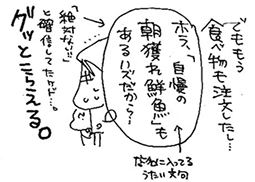 でももう
食べ物も注文したし…
ホラ、「自慢の
朝獲れ鮮魚」も
あるハズだから…?
なぜに入ってる
うたい文句
「絶対ない…」
と確信してたケド…
グッとこらえる。